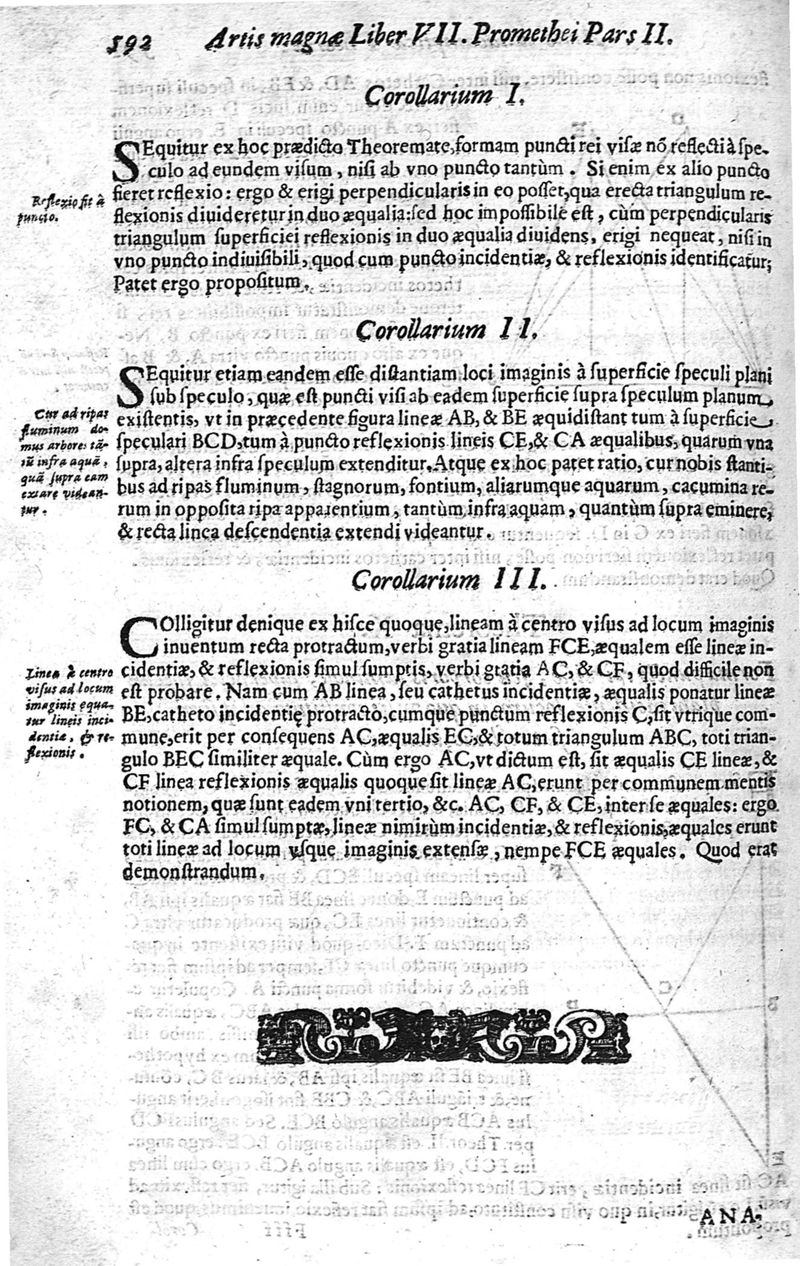 592 Artis magnæ Liber VII. Promethei Pars II.
Corollarium I.
SEquitur ex hoc prædicto Theoremate, formam puncti rei visæ nõ reflecti à spe-
culo ad eundem visum, nisi ab vno puncto tantùm. Si enim ex alio puncto
fieret reflexio: ergo & erigi perpendicularis in eo posset, qua erecta triangulum re-
flexionis diuideretur in duo æqualia: sed hoc impossibile est, cùm perpendicularis
triangulum superficiei reflexionis in duo æqualia diuidens, erigi nequeat, nisi in
vno puncto indiuisibili, quod cum puncto incidentiæ, & reflexionis identificatur;
Patet ergo propositum.
Reflexio fit à
puncto.
Corollarium II.
SEquitur etiam eandem esse distantiam loci imaginis à superficie speculi plani
sub speculo, quæ est puncti visi ab eadem superficie supra speculum planum
existentis, vt in præcedente figura lineæ AB, & BE æquidistant tum à superficie
speculari BCD, tum à puncto reflexionis lineis CE, & CA æqualibus, quarum vna
supra, altera infra speculum extenditur. Atque ex hoc patet ratio, cur nobis stanti-
bus ad ripas fluminum, stagnorum, fontium, aliarumque aquarum, cacumina re-
rum in opposita ripa apparentium, tantùm infra aquam, quantùm supra eminere,
& recta linea descendentia extendi videantur.
Cur ad ripas
fluminum do-
mus arbores tã-
tũ infra aquã,
quã supra eam
extare videan-
tur.
Corollarium III.
COlligitur denique ex hisce quoque, lineam à centro visus ad locum imaginis
inuentum recta protractum, verbi gratia lineam FCE, æqualem esse lineæ in-
cidentiæ, & reflexionis simul sumptis, verbi gratia AC, & CF, quod difficile non
est probare. Nam cum AB linea, seu cathetus incidentiæ, æqualis ponatur lineæ
BE, catheto incidentię protracto, cumque punctum reflexionis C, sit vtrique com-
mune, erit per consequens AC, æqualis EC, & totum triangulum ABC, toti trian-
gulo BEC similiter æquale. Cùm ergo AC, vt dictum est, sit æqualis CE lineæ, &
CF linea reflexionis æqualis quoque sit lineæ AC, erunt per communem mentis
notionem, quæ sunt eadem vni tertio, &c. AC, CF, & CE, inter se æquales: ergo
FC, & CA simul sumptæ, lineæ nimirùm incidentiæ, & reflexionis, æquales erunt
toti lineæ ad locum vsque imaginis extensæ, nempe FCE æquales. Quod erat
demonstrandum.
Linea à centro
visus ad locum
imaginis equa-
tur lineis inci-
dentiæ, & re-
flexionis.
ANA-